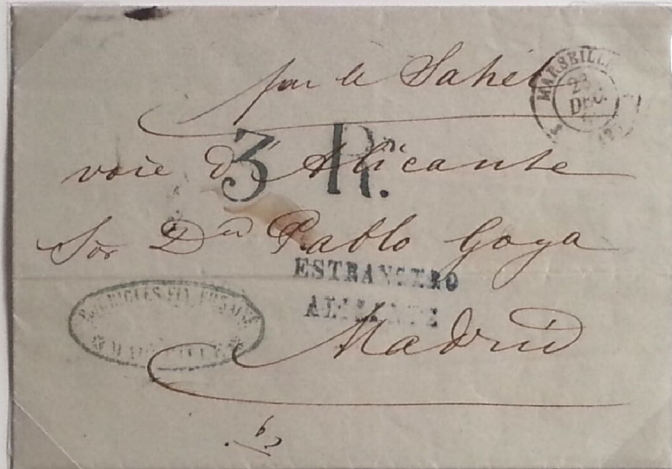 par le Sahel
MARSEILLE
23
DEC.
3 R.
voie d'Alicante
Sor Dn Pablo Goya
ESTRANGERO
ALICANTE
Madrid
MARSEILLE